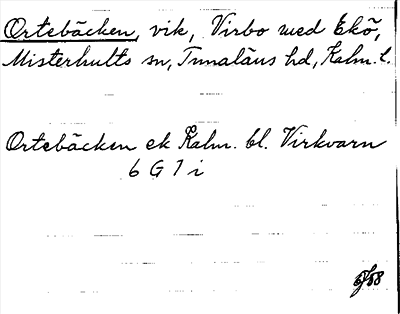 Ortebäcken, vik, Virbo med Ekö,
Misterhults sn, Tunaläns hd, Kalm. l.
Ortebäcken ek Kalm. bl. Virkvarn
6 G 7 i